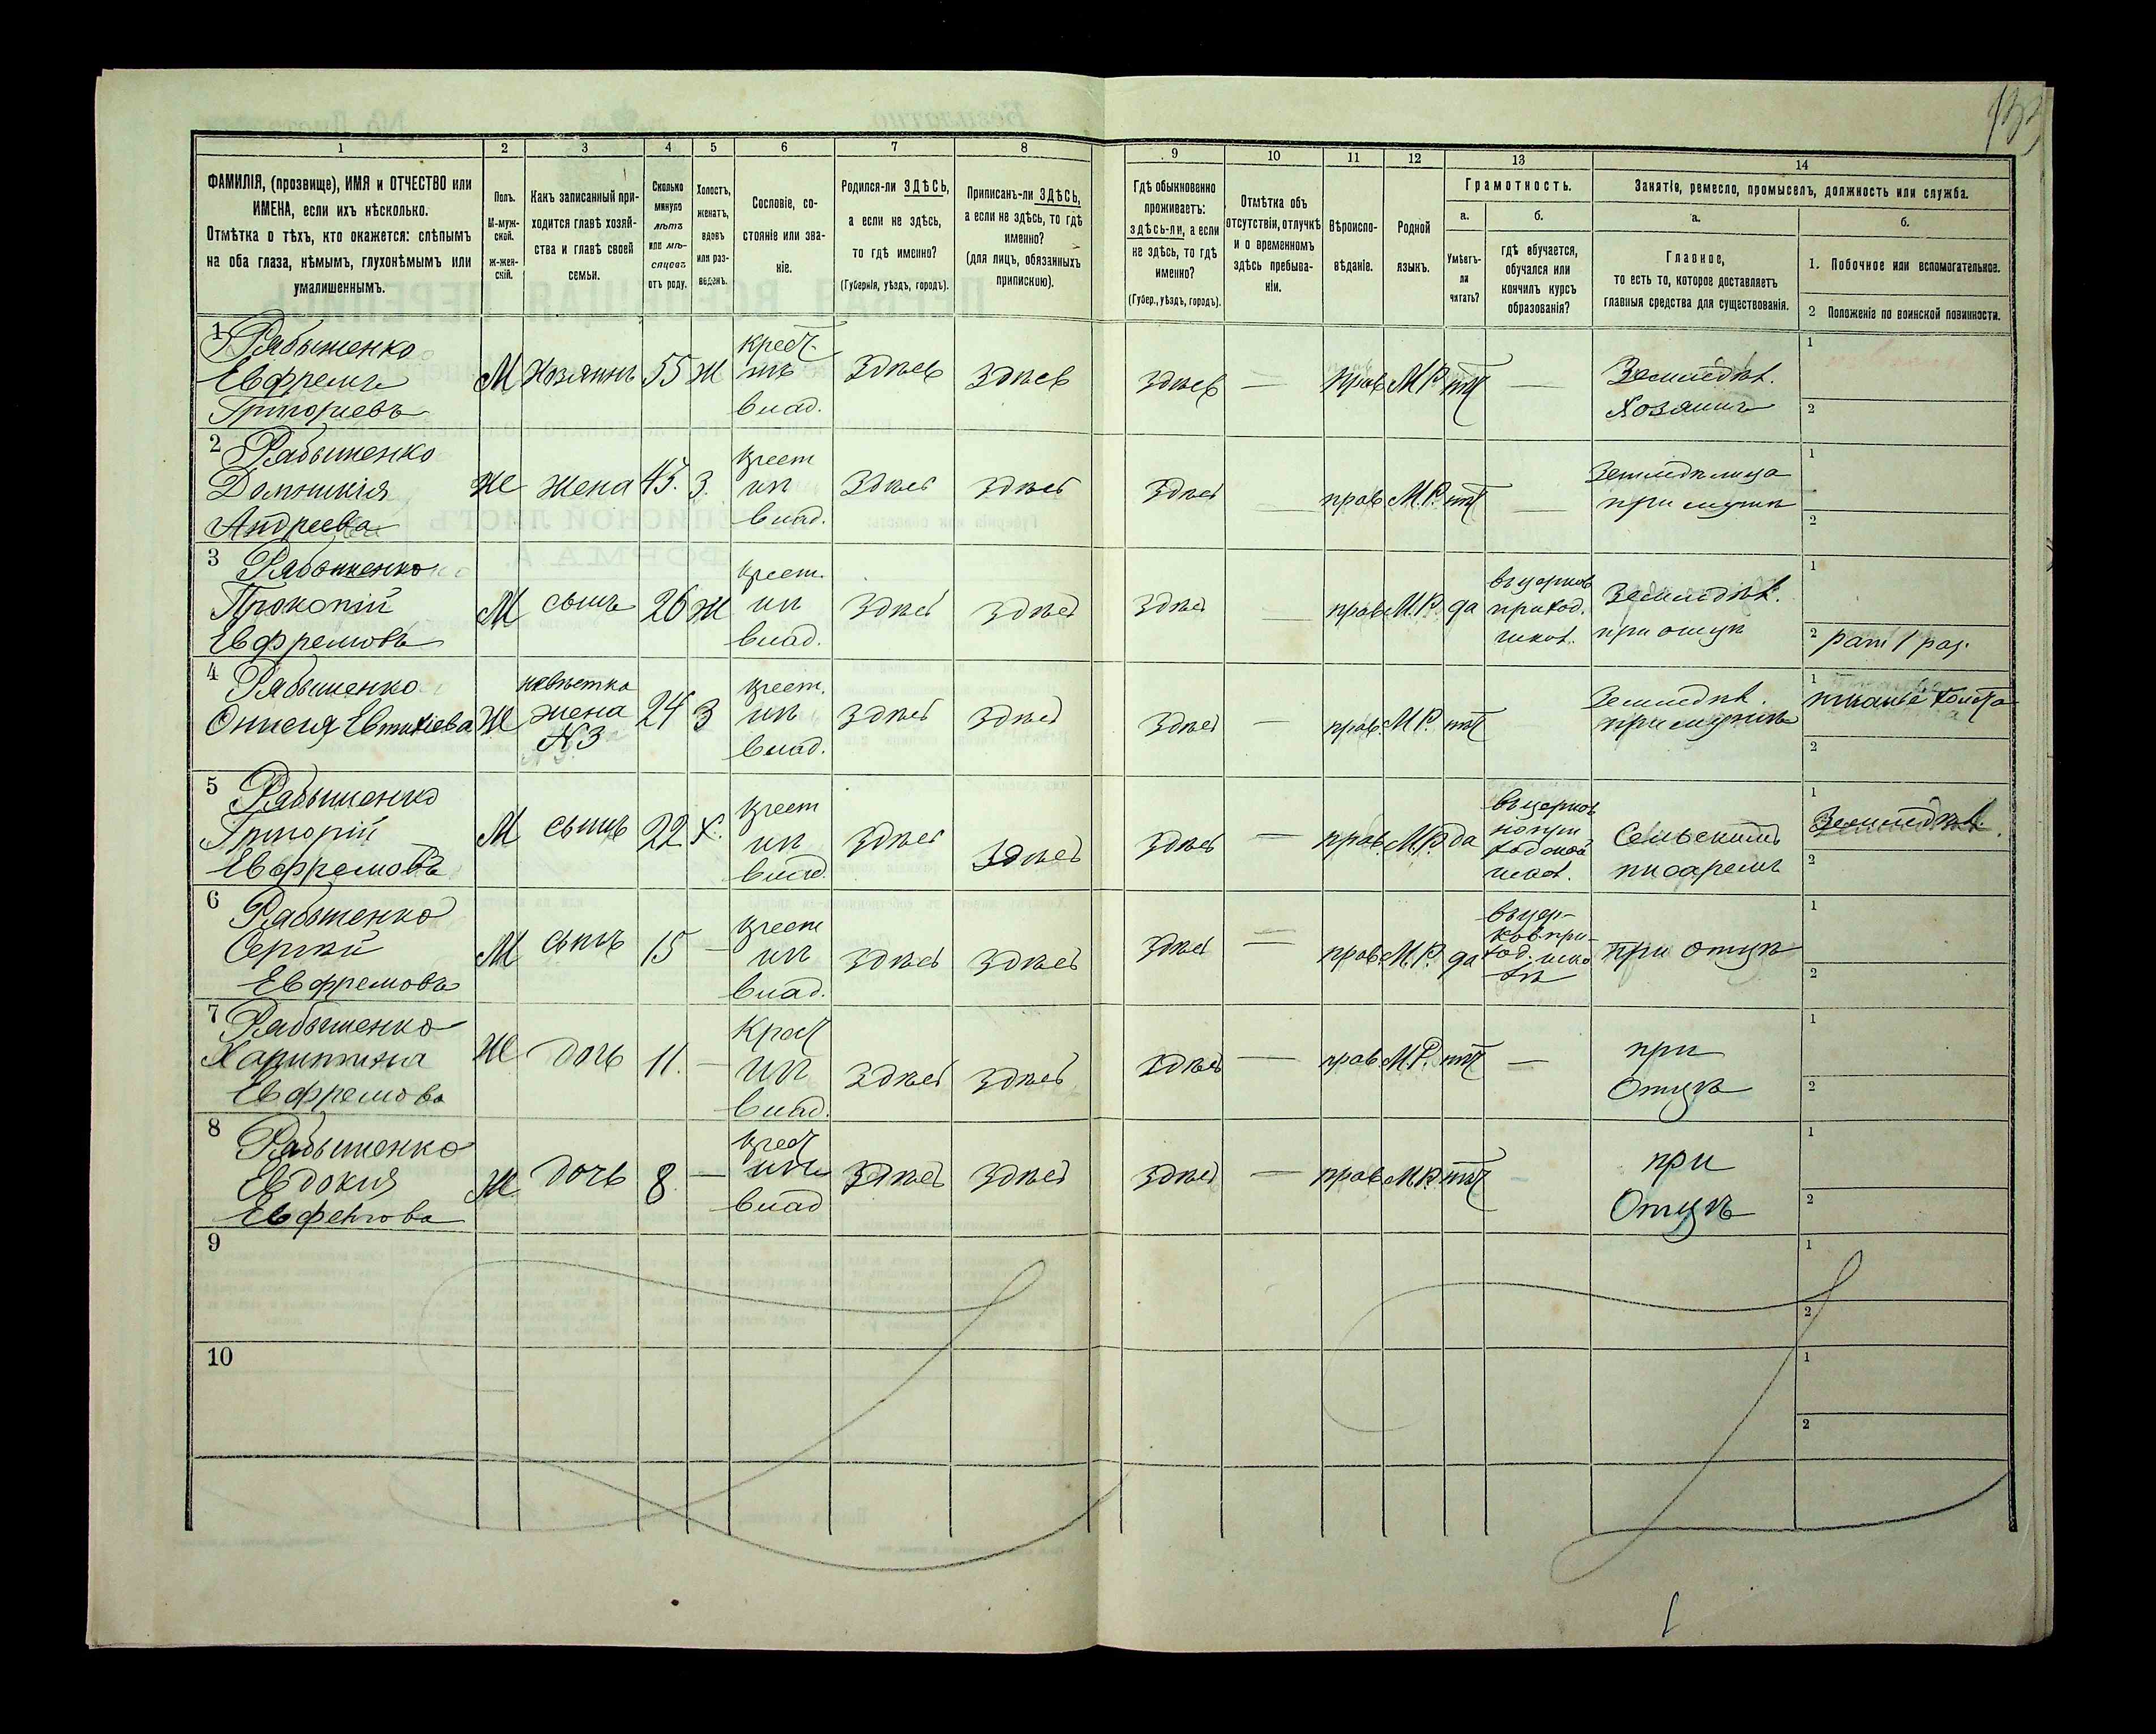 1
2
3
4
5
6
7
8
ФАМИЛІЯ, (прозвище), ИМЯ и ОТЧЕСТВО или
ИМЕНА, если ихъ нѣсколько.
Отмѣтка о тѣхъ, кто окажется: слѣпымъ
на оба глаза, нѣмымъ, глухонѣмымъ или
умалишеннымъ.
Полъ.
М-муж-
ской.
Ж-жен-
скій.
Какъ записанный при-
ходится главѣ хозяй-
ства и главѣ своей
семьи.
Сколько
минуло
лѣтъ
или мѣ-
сяцовъ
отъ роду.
Холостъ,
женатъ,
вдовъ
или раз-
веденъ.
Сословіе, со-
стояніе или зва-
ніе.
Родился-ли ЗДѢСЬ,
а если не здѣсь,
то гдѣ именно?
(Губернія, уѣздъ, городъ).
Приписанъ-ли ЗДѢСЬ,
а если не здѣсь, то гдѣ
именно?
(для лицъ, обязанныхъ
припискою).
9
10
11
12
13
14
Гдѣ обыкновенно
проживаетъ:
здѣсь-ли, а если
не здѣсь, то гдѣ
именно?
(Губер., уѣздъ, городъ).
Отмѣтка объ
отсутствіи, отлучкѣ
и о временномъ
здѣсь пребыва-
ніи.
Вѣроиспо-
вѣданіе.
Родной
языкъ.
Грамотность.
а.
Умѣетъ-
ли
читать?
б.
гдѣ обучается,
обучался или
кончилъ курсъ
образованія?
Занятіе, ремесло, промыселъ, должность или служба.
а.
Главное,
то есть то, которое доставляетъ
главныя средства для существованія.
б.
1. Побочное или вспомогательное.
2 Положеніе по воинской повинности.
1 Рябышенко
Евфремъ
Григорьевъ
М
Хозяинъ
55
Ж
крест.
ин
влад.
Здѣсь
Здѣсь
Здѣсь
—
прав
М.Р.
нѣт
—
Земледѣл.
Хозяинъ
1
2
2 Рябышенко
Домникія
Андреева
Ж
жена
45.
З.
крест
ин
влад.
Здѣсь
Здѣсь
Здѣсь
—
прав
М.Р.
нѣт
—
Земледѣлица
при мужѣ
1
2
3 Рябышенко
Прокопій
Евфремовъ
М
сынъ
26
Ж
крест.
ин
влад.
Здѣсь
Здѣсь
Здѣсь
—
прав
М.Р.
да
въ церков
приход.
школ.
Земледѣл.
при отцѣ
1
2 рат 1 раз.
4 Рябышенко
Евтихіева
Ж
невѣстка
жена
N 3
24
З
крест.
ин
влад.
Здѣсь
Здѣсь
Здѣсь
—
прав.
М.Р.
нѣт
Земледѣл.
при мужѣ
1 тканье холста
2
5 Рябышенко
Григорій
Евфремовъ
М
сынъ
22
Х.
крест
ин
влад.
Здѣсь
Здѣсь
Здѣсь
—
прав.
М.Р.
да
въ церков
школ.
Сельскимъ
писаремъ
1 Земледѣл.
2
6 Рябышенко
Сергій
Евфремовъ
М
сынъ
15
—
крест
ин
влад.
Здѣсь
Здѣсь
Здѣсь
—
прав.
М.Р.
да
въ цер-
ков. при-
ход. шко
лѣ
при отцѣ
1
2
7 Рябышенко
Харитина
Евфремова
Ж
дочь
11.
—
Крест
ин
влад.
Здѣсь
Здѣсь
Здѣсь
—
прав
М.Р.
нѣт
—
при
Отцѣ
1
2
8 Рябышенко
Евдокия
Ж
дочь
8
—
крест
ин
влад
Здѣсь
Здѣсь
Здѣсь
—
прав
М.Р.
нѣт
-
при
Отцѣ
1
2
9
1
2
10
1
2